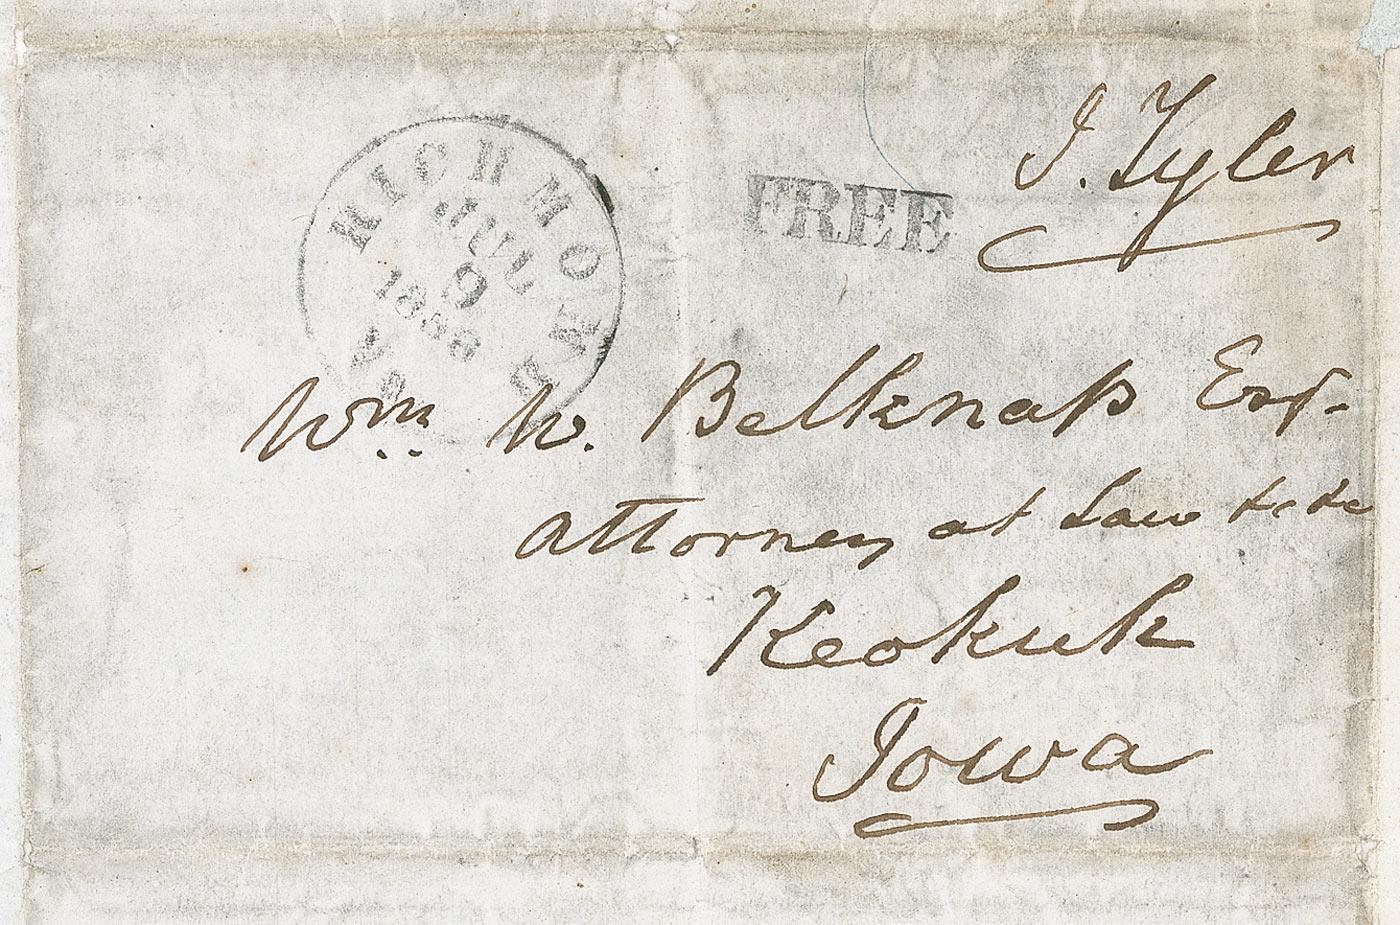 J. Tyler
FREE
RICHMOND
JUL
9
Va
Wm W. Belknap Esq.
Attorney at Law &c &c
Keokuk
Iowa